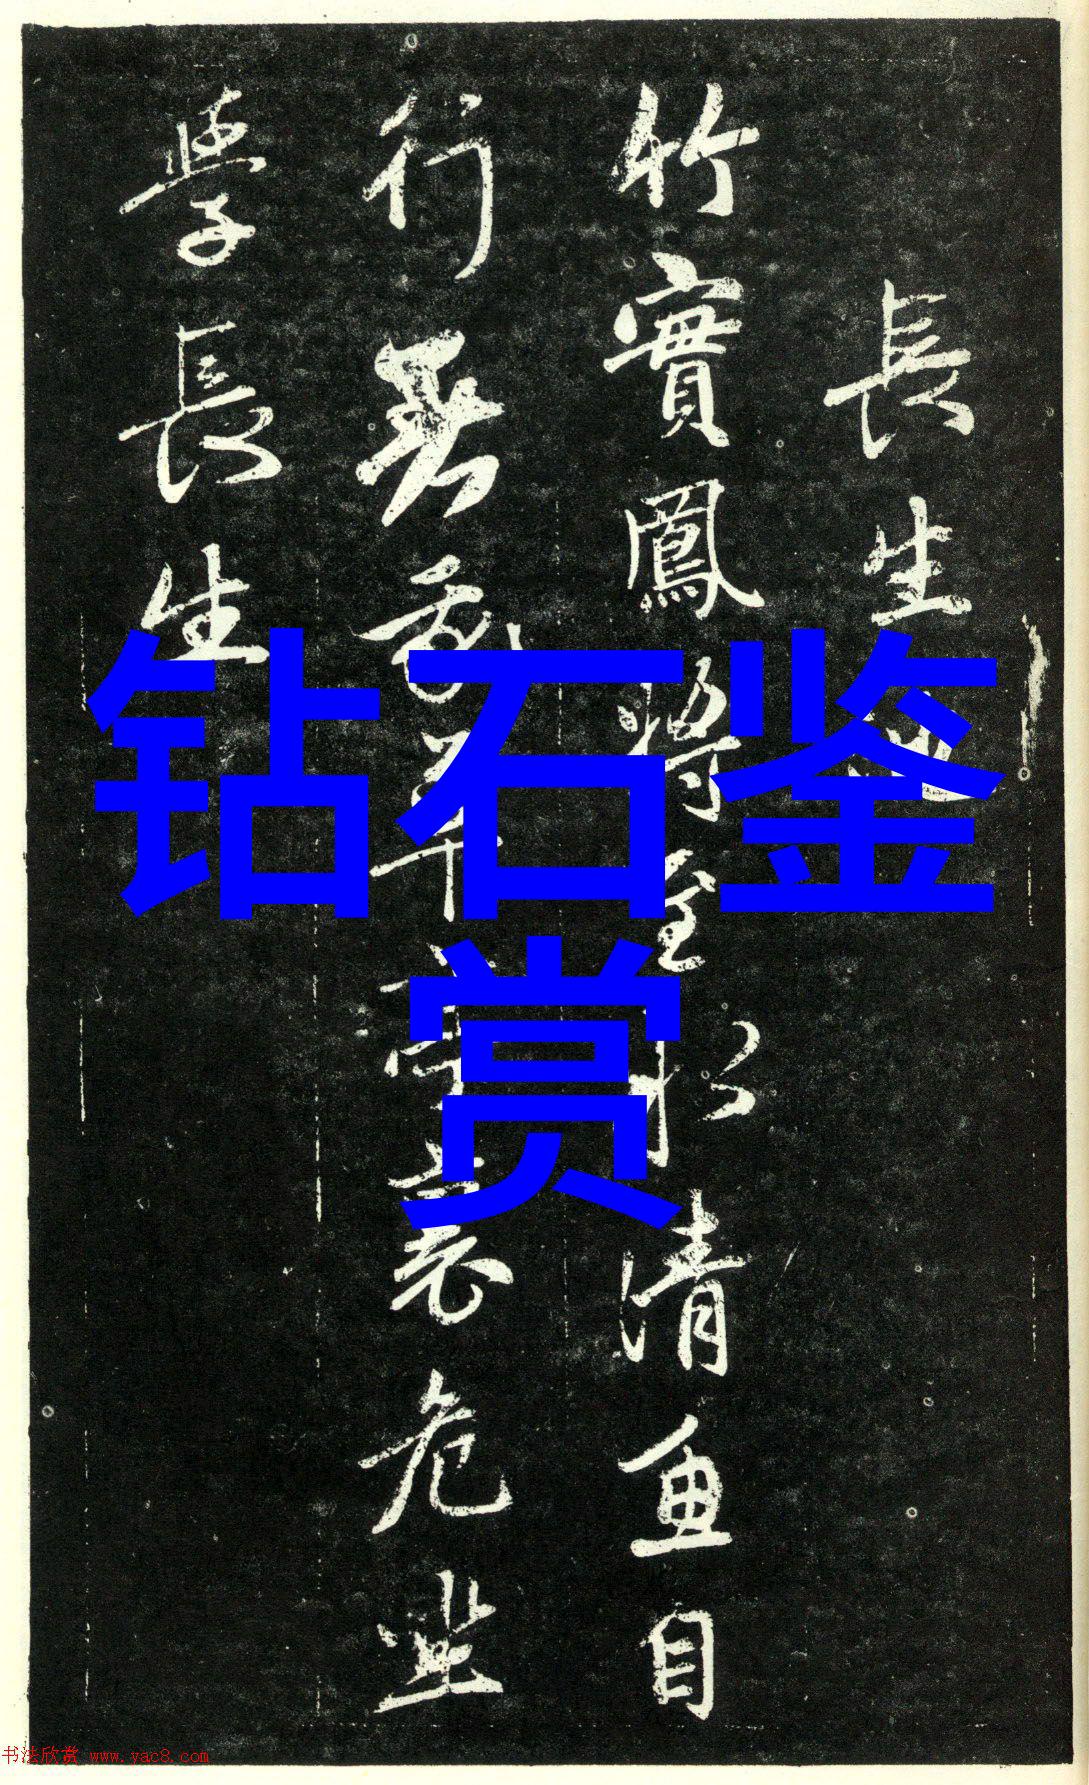 長生
竹實鳳將至松清魚自
行危坐
學長生
钻石鉴
赏
书法欣赏 www.yac8.com